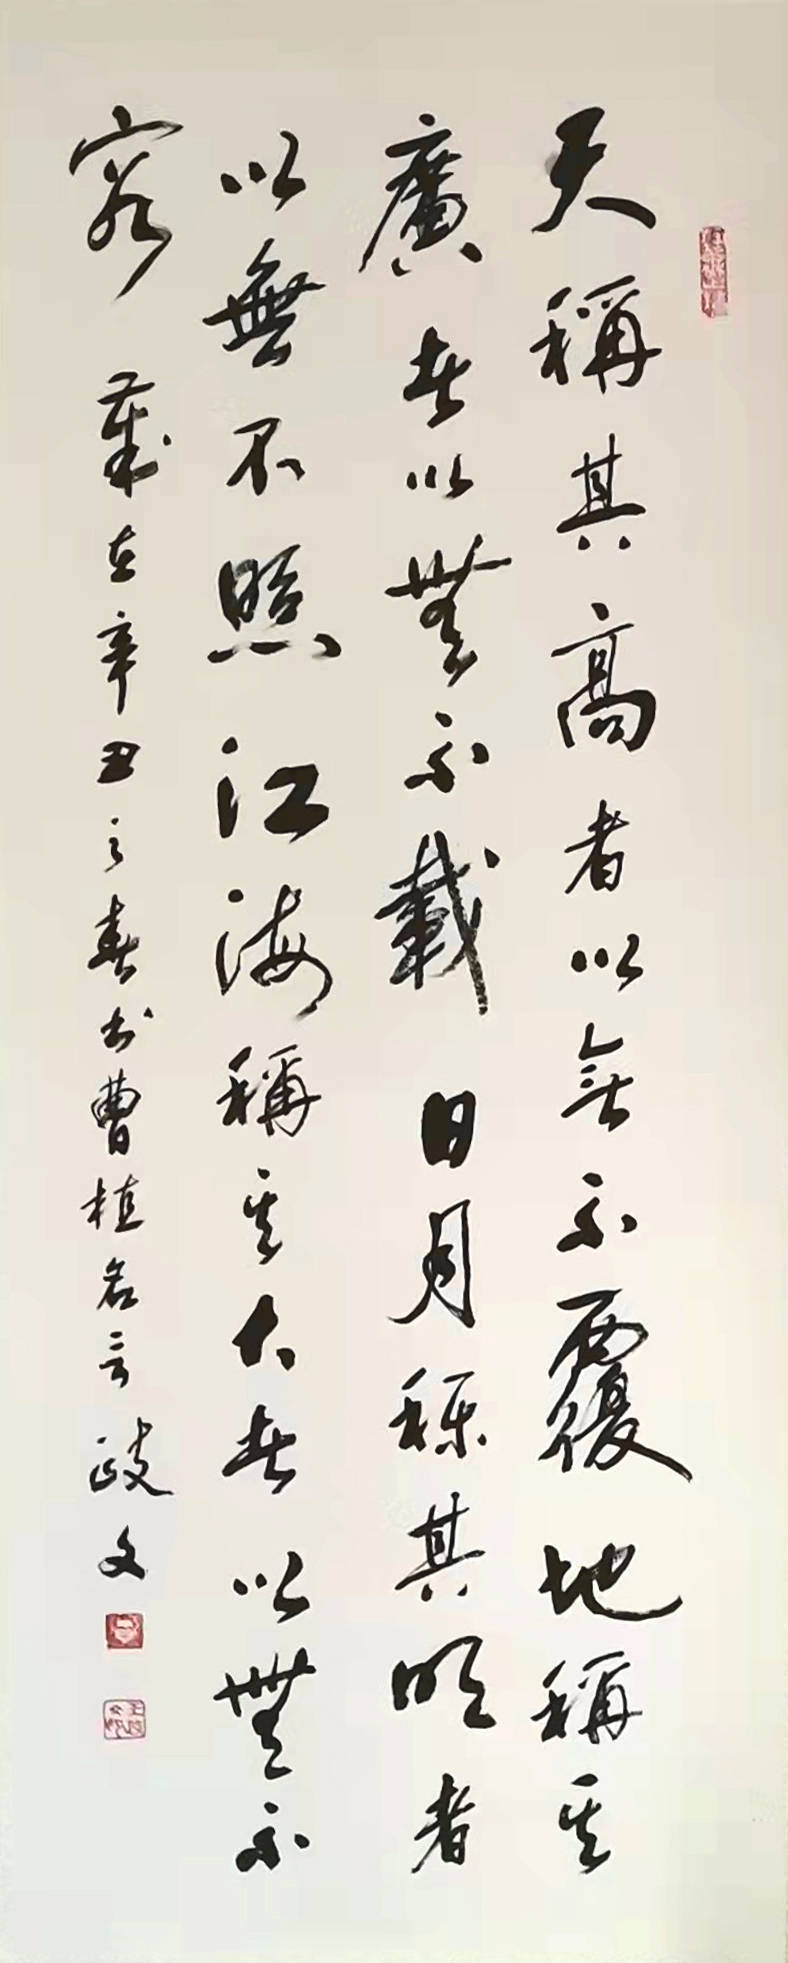 天稱其高者以無不覆地稱其
廣者以無不載日月稱其明者
以無不照江海稱其大者以無不
容 歲在辛丑之春書曹植名言 歧文